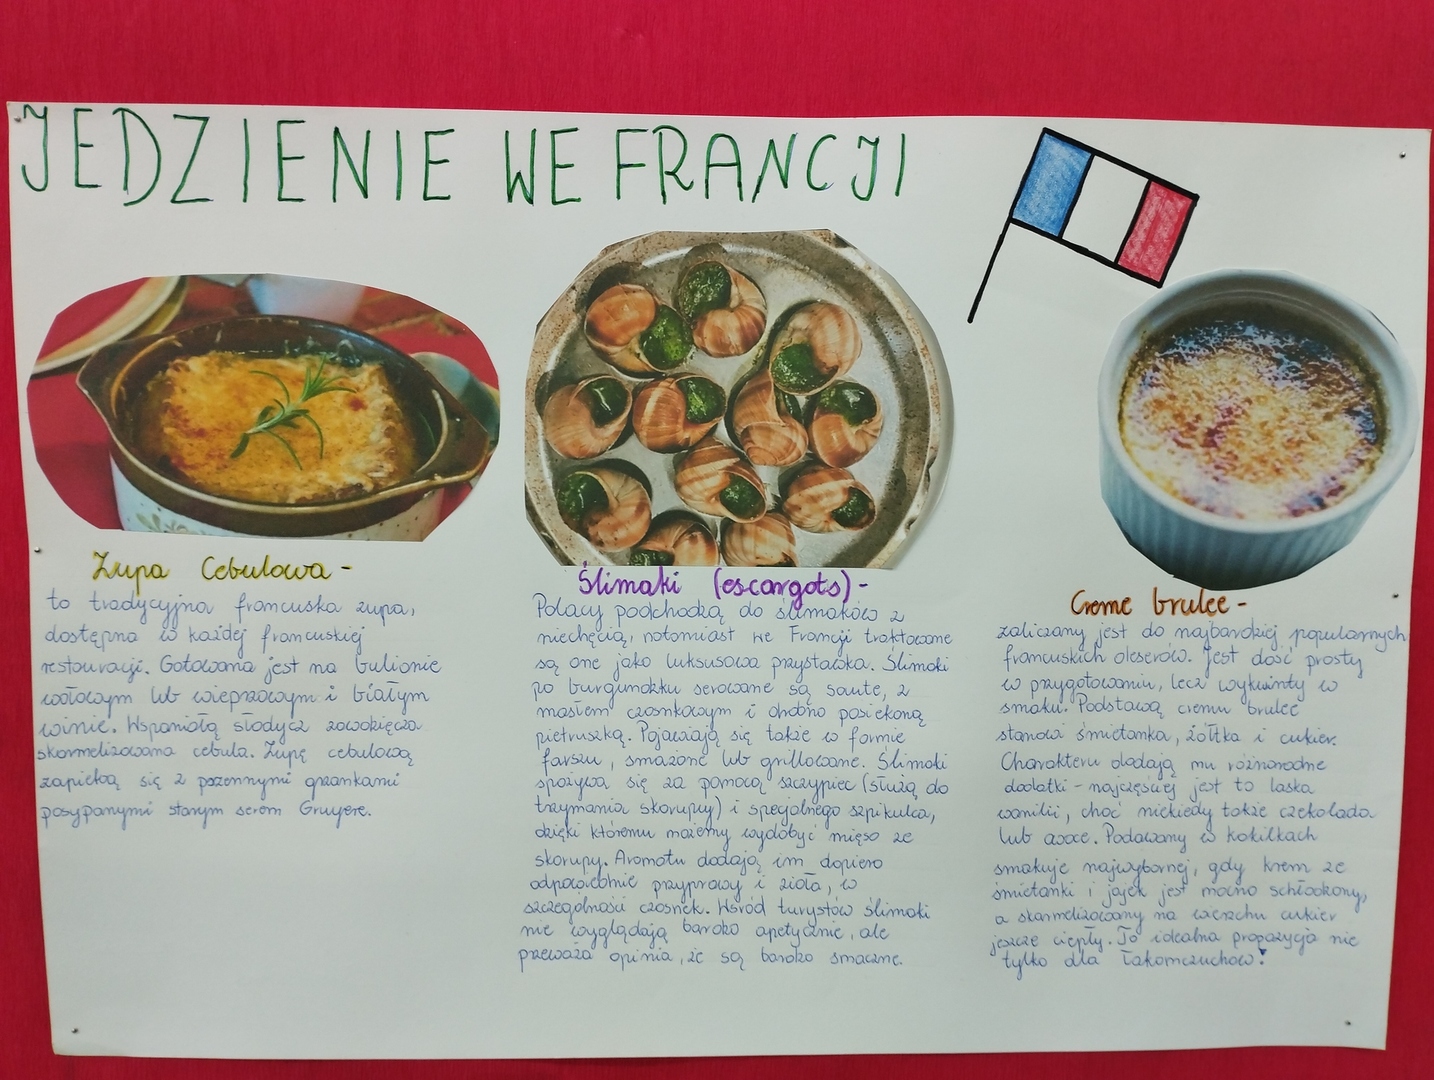 JEDZIENIE WE FRANCJI
Zupa Cebulowa -
to tradycyjna francuska zupa,
dostępna w każdej francuskiej
restauracji. Gotowana jest na bulionie
wołowym lub wieprzowym i białym
winie. Wspaniałą słodycz zawdzięcza
skarmelizowana cebula. Zupę cebulową
zapieką się z pszennymi grzankami
posypanymi startym serem Gruyere.
Ślimaki (escargots) -
Polacy podchodzą do ślimaków z
niechęcią, natomiast we Francji traktowane
są one jako luksusowa przystawka. Ślimaki
po burgundzku serwowane są saute, z
masłem czosnkowym i drobno posiekaną
pietruszką. Pojawiają się także w formie
farszu, smażone lub grillowane. Ślimaki
spożywa się za pomocą szczypiec (służą do
trzymania skorupy) i specjalnego szpikulca,
dzięki któremu możemy wydobyć mięso ze
skorupy. Aromatu dodają im dopiero
odpowiednie przyprawy i zioła, w
szczególności czosnek. Wśród turystów ślimaki
nie wyglądają bardzo apetycznie, ale
przeważa opinia, że są bardzo smaczne.
Creme brulee -
zaliczany jest do najbardziej popularnych
francuskich deserów. Jest dość prosty
w przygotowaniu, lecz wykwintny w
smaku. Podstawą cremu brulee
stanowi śmietanka, żółtka i cukier.
Charakteru dodają mu różnorodne
dodatki - najczęściej jest to laska
wanilii, choć niekiedy także czekolada
lub owoce. Podawany w kokilkach
smakuje najwyborniej, gdy krem ze
śmietanki i jajek jest mocno schłodzony,
a skarmelizowany na wierzchu cukier
jeszcze ciepły. To idealna propozycja nie
tylko dla łakomczuchów!